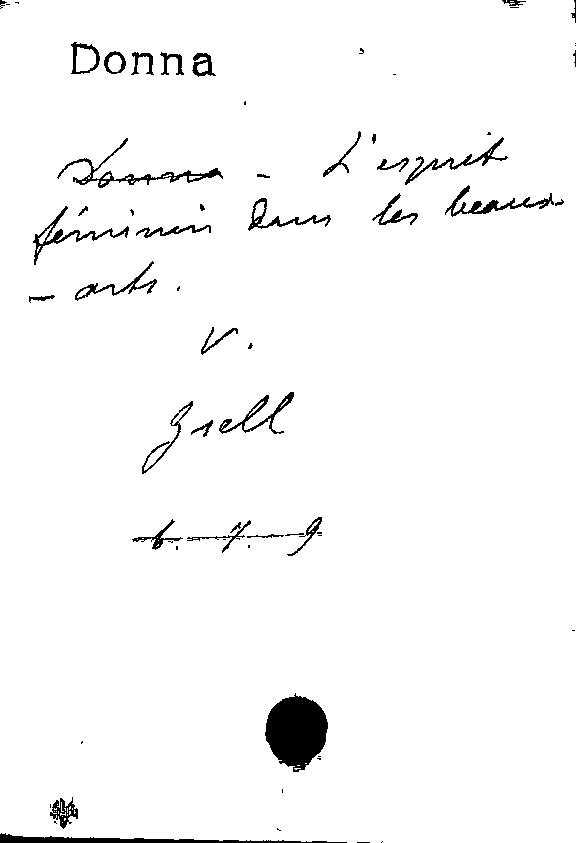 Donna
Donna - L'esprit
féminin dans les beaux
- arts.
V.
Gsell
6. 7. 9